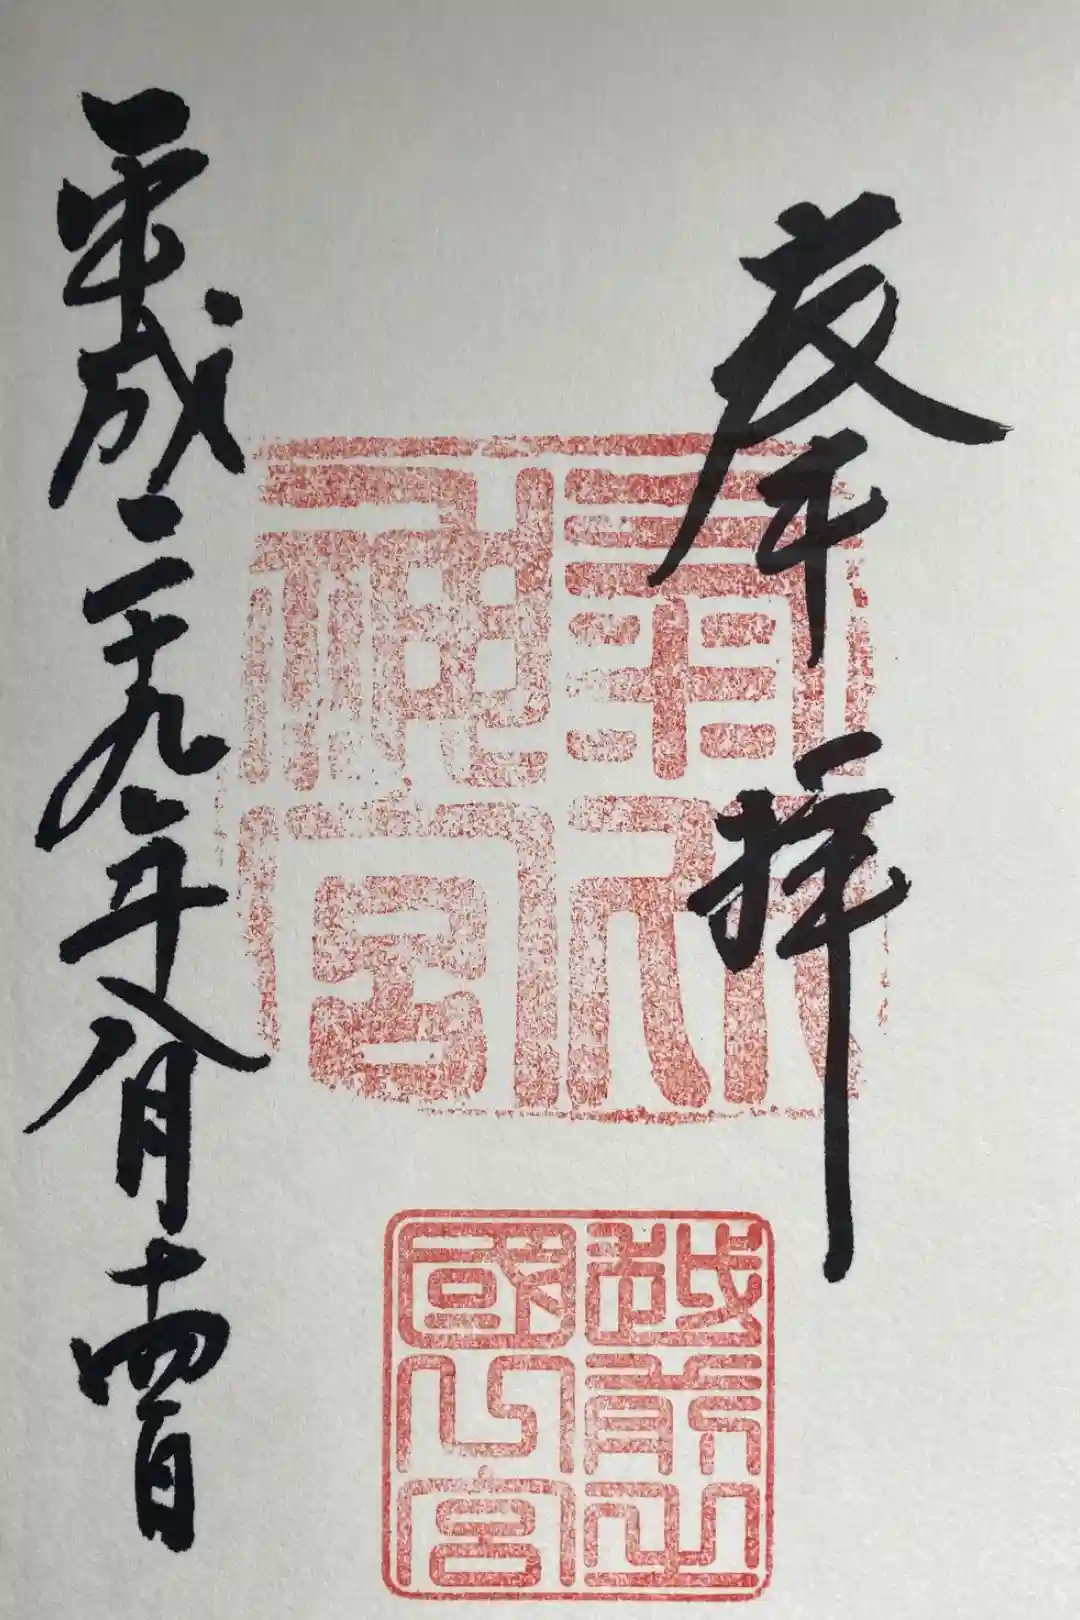 奉拝
氣比
神宮
越前之
國一宮
平成二十九年八月十四日